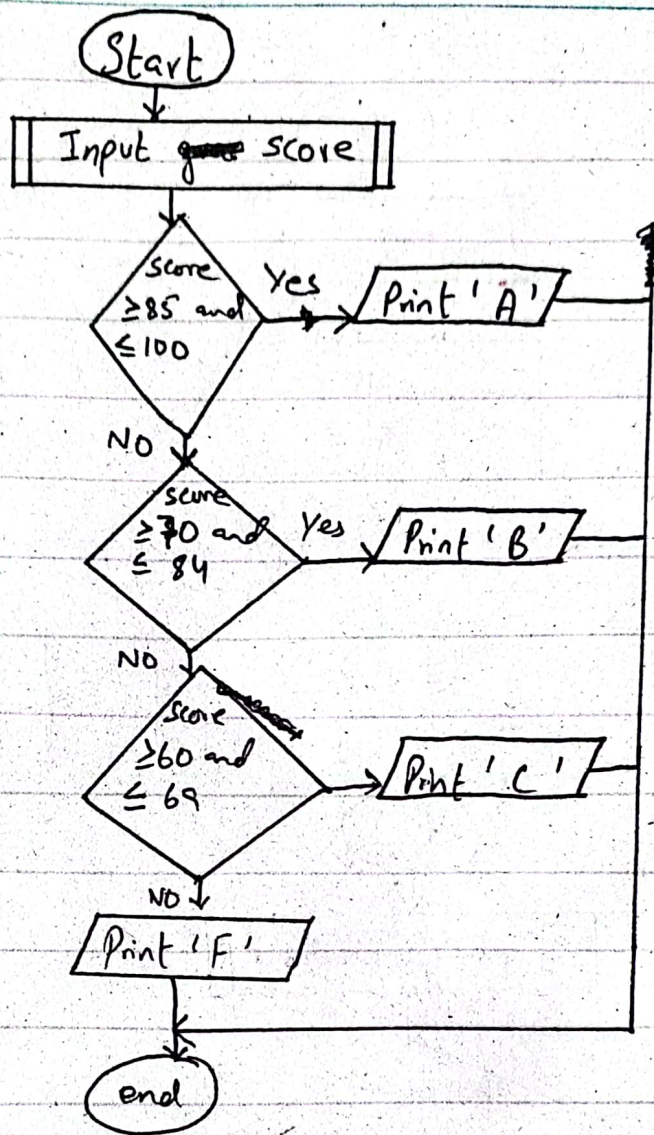 Start
Input score
score
≥85 and
≤100
Yes
Print 'A'
NO
score
≥70 and
≤ 84
Yes
Print 'B'
NO
score
≥60 and
≤ 69
Print 'C'
NO
Print 'F'
end